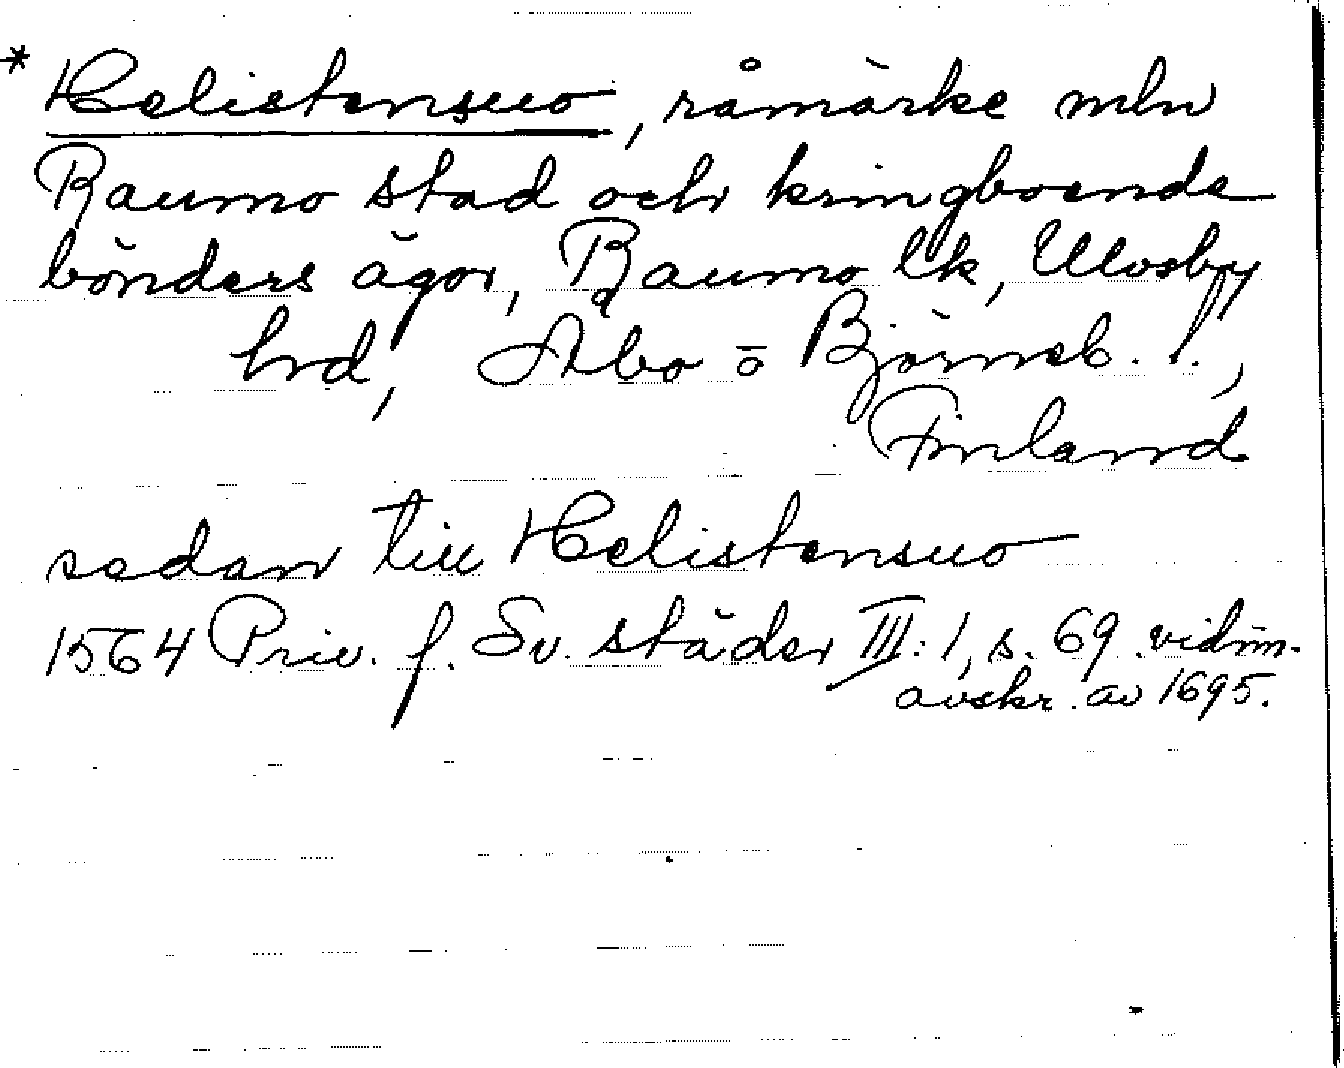 * Helistensuo, råmärke mln
Raumo stad och kringboende
bönders ägor, Raumo lk, Ulvsby
hrd, Åbo o Björneb. l.,
Finland
sedan till Helistensuo
1564 Priv. f. Sv. städer III:1, s. 69 vidim.
avskr. av 1695.